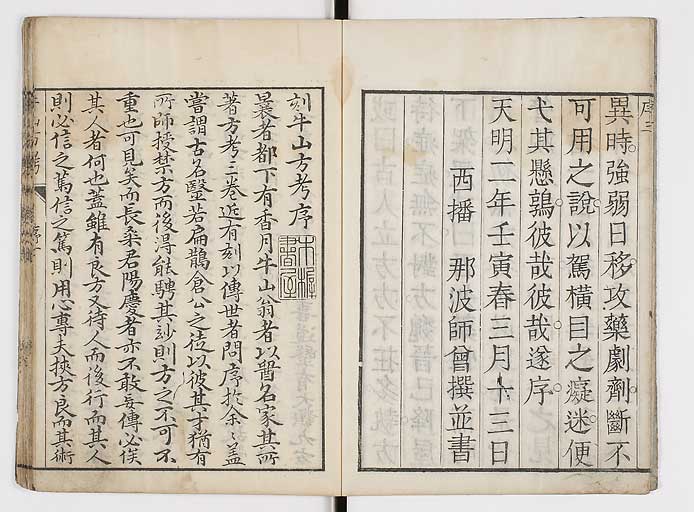 序三
異時強弱日移攻藥劇劑斷不
可用之說以駕橫目之癡迷便
弋其懸鶉彼哉彼哉遂序
天明二年壬寅春三月十三日
西播 那波師曾撰並書
刻牛山方考序
曩者都下有香月牛山翁者以醫名家其所
著方考三卷近有刻以傳世者問序於余〻蓋
嘗謂古名醫若扁鵲倉公之位以彼其才猶有
所師授禁方而後得能騁其玅則方之不可不
重也可見矣而長桑君陽慶者亦不敢妄傳必俟
其人者何也蓋雖有良方又待人而後行而其人
則必信之篤信之篤則用心專夫挾方良而其術